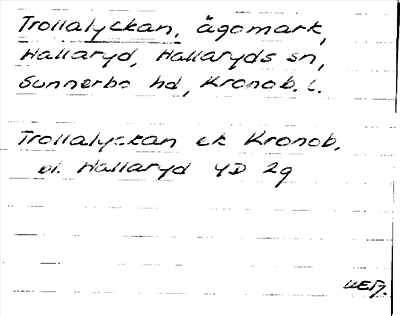 Trollalyckan, ägomark,
Hallaryd, Hallaryds sn,
Sunnerbo hd, Kronob. l.
Trollalyckan ek Kronob.
bl. Hallaryd 4D 2g